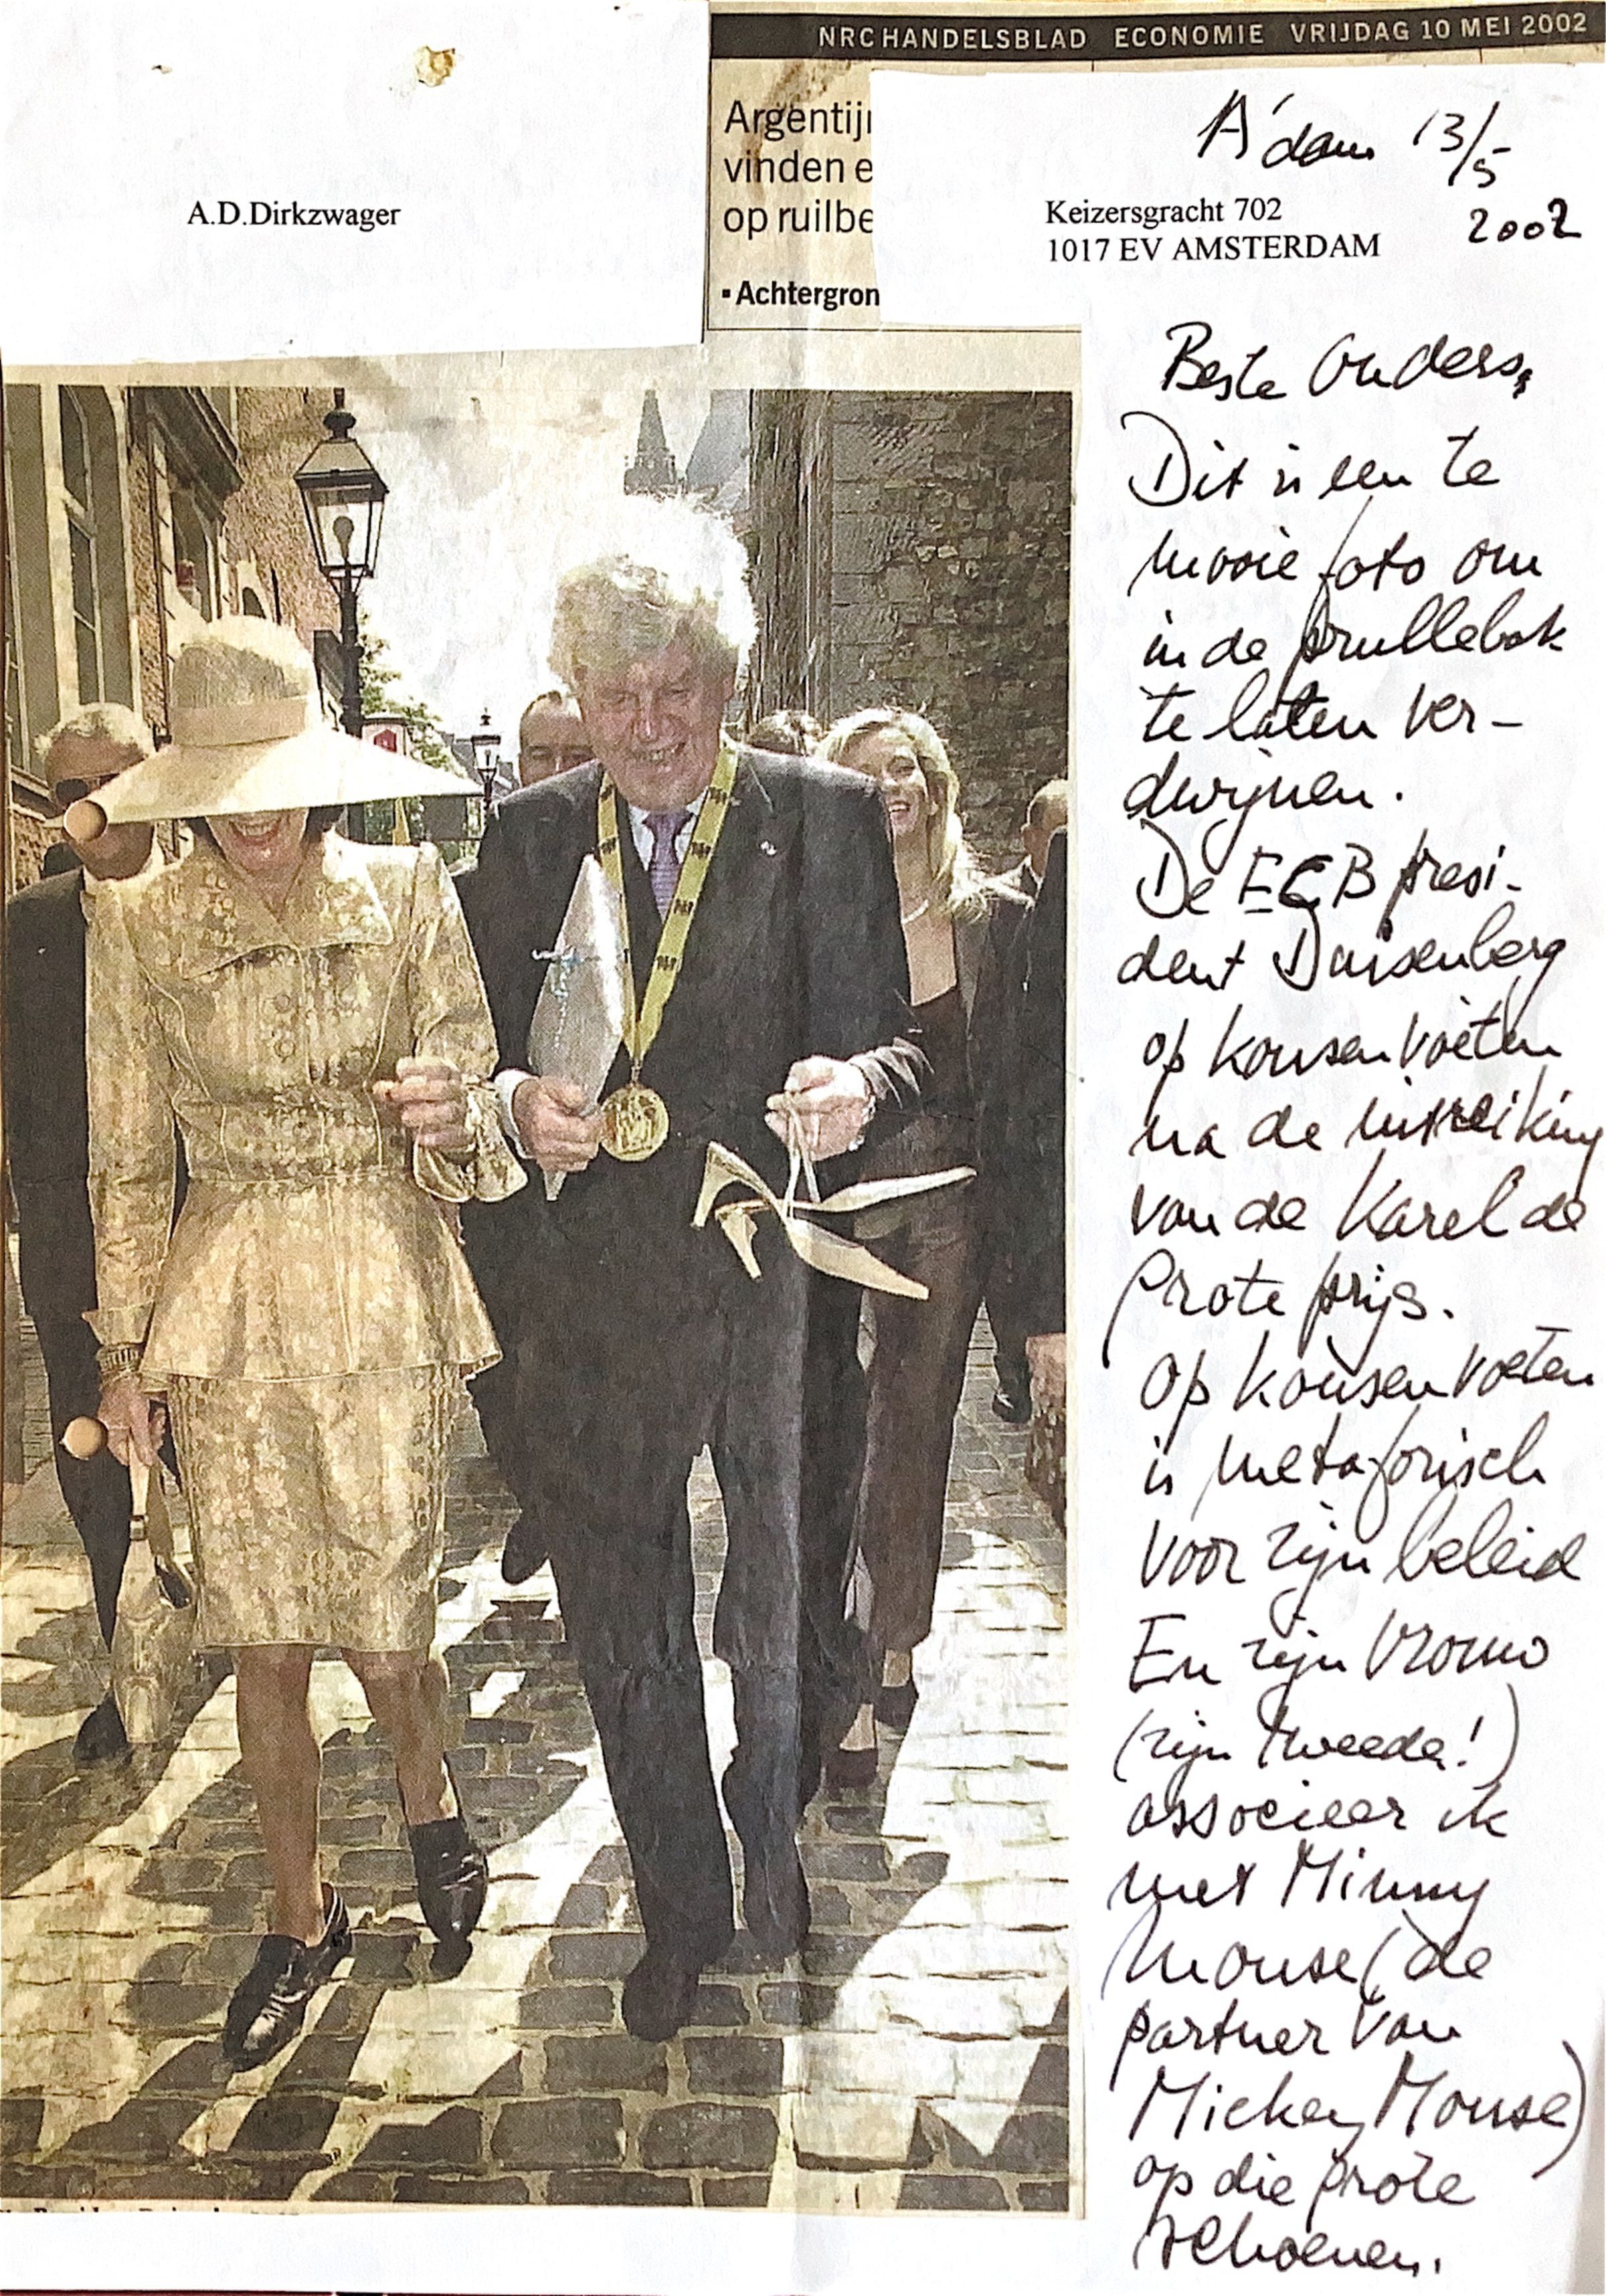 NRC HANDELSBLAD ECONOMIE VRIJDAG 10 MEI 2002
Argentij
vinden e
op ruilbe
▪ Achtergron
A.D.Dirkzwager
A'dam 13/5
2002
Keizersgracht 702
1017 EV AMSTERDAM
Beste Ouders,
Dit is een te
mooie foto om
in de prullebak
te laten ver-
dwijnen.
De ECB presi-
dent Duisenberg
op kousenvoeten
na de uitreiking
van de Karel de
Grote prijs.
Op kousenvoeten
is metaforisch
voor zijn beleid
En zijn vrouw
(zijn tweede!)
associeer ik
met Minny
Mouse (de
partner van
Mickey Mouse)
op die grote
schoenen.